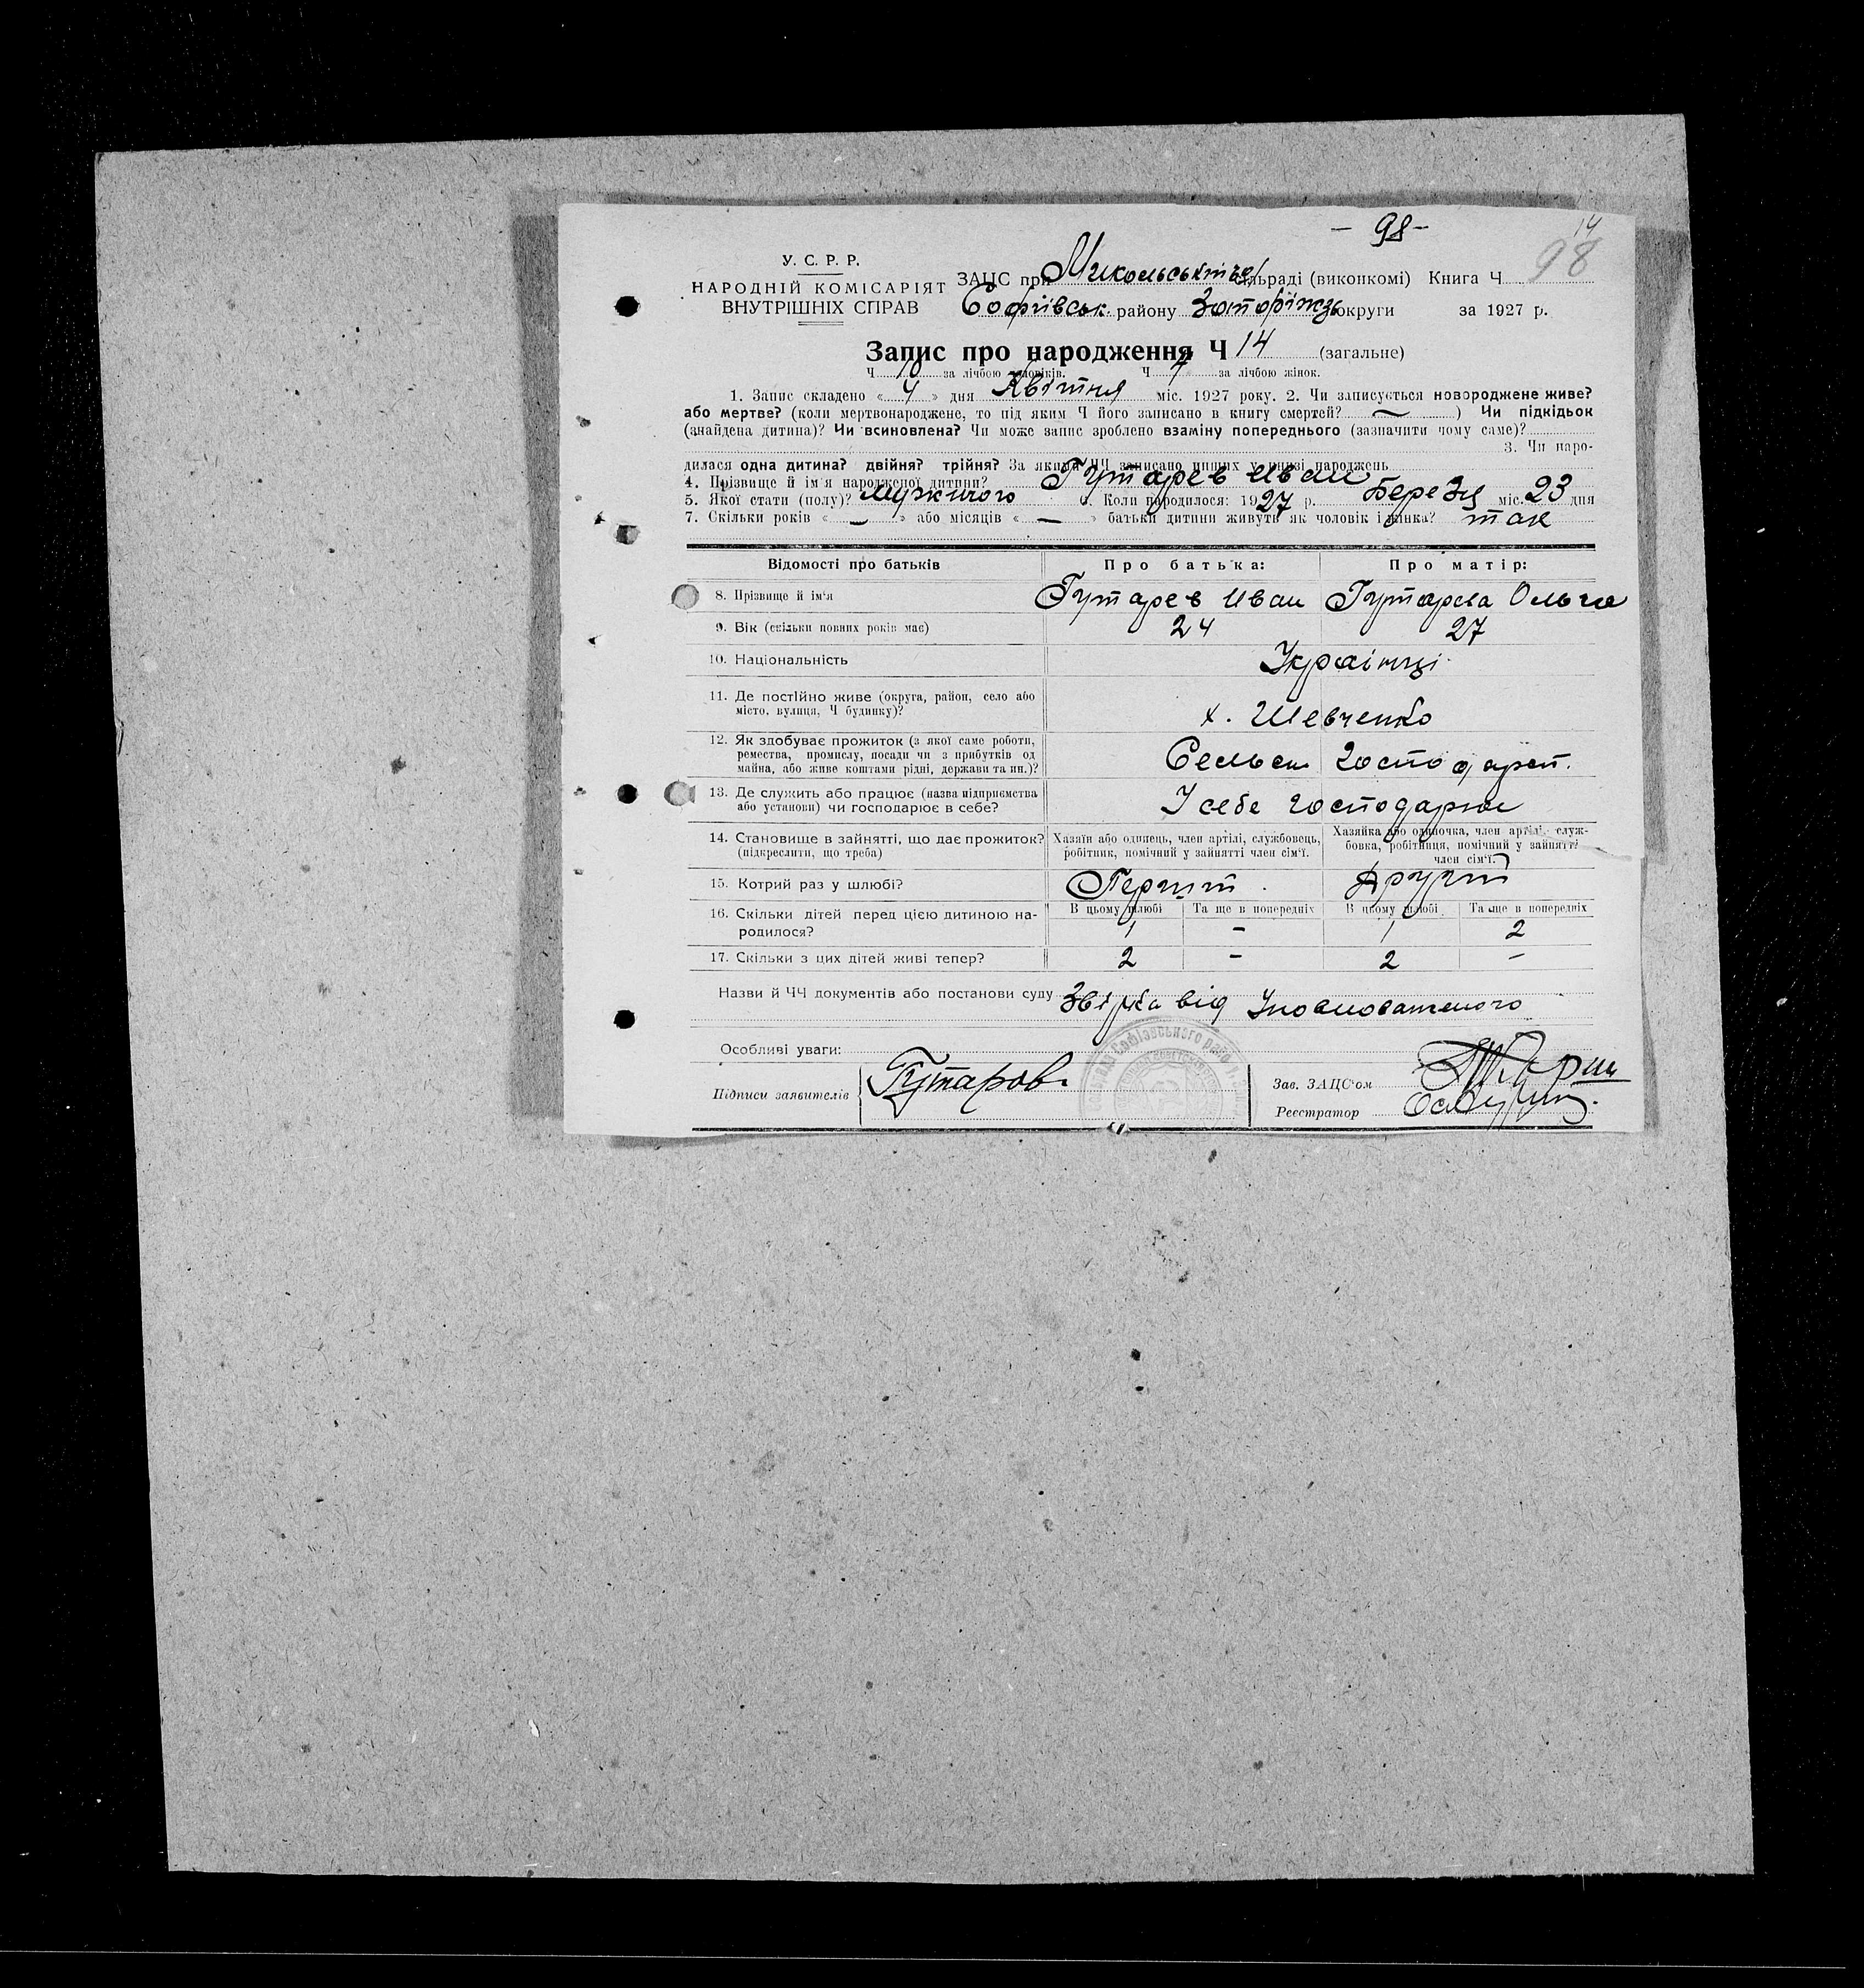 - 98 -
14
98
У. С. Р. Р.
НАРОДНІЙ КОМІСАРІЯТ
ВНУТРІШНІХ СПРАВ
ЗАЦС при Микольській сільраді (виконкомі) Книга Ч
Софіївськ. району Запоріжзь округи за 1927 р.
Запис про народження Ч 14 (загальне)
Ч за лічбою чоловіків. Ч 7 за лічбою жінок.
1. Запис складено « 4 » дня Квітня міс. 1927 року. 2. Чи записується новороджене живе?
або мертве? (коли мертвонароджене, то під яким Ч його записано в книгу смертей? — ) Чи підкідьок
(знайдена дитина)? Чи всиновлена? Чи може запис зроблено взаміну попереднього (зазначити чому саме)?
3. Чи наро-
дилася одна дитина? двійня? трійня? За якими ЧЧ записано инших у книзі народжень
4. Прізвище й ім'я народженої дитини? Гутарев Иван
5. Якої стати (полу)? мужчого 6. Коли народилося: 1927 р. Березя міс. 23 дня
7. Скільки років « — » або місяців « — » батьки дитини живуть як чоловік і жінка? так
Відомості про батьків Про батька: Про матір:
8. Прізвище й ім'я Гутарев Иван Гутарева Ольга
9. Вік (скільки повних років має) 24 27
10. Національність Українці
11. Де постійно живе (округа, район, село або
місто, вулиця, Ч будинку)?
х. Шевченко
12. Як здобуває прожиток (з якої саме роботи,
ремества, промислу, посади чи з прибутків од
майна, або живе коштами рідні, держави та ин.)?
Сельск господарст.
13. Де служить або працює (назва підприємства
або установи) чи господарює в себе?
У себе господарюе
14. Становище в зайнятті, що дає прожиток?
(підкреслити, що треба)
Хазяїн або одинець, член артілі, службовець,
робітник, помічний у зайнятті член сім'ї.
Хазяйка або одиночка, член артілі, служ-
бовка, робітниця, помічний у зайнятті
член сім'ї.
15. Котрий раз у шлюбі? Перший Другий
16. Скільки дітей перед цією дитиною на-
родилося?
В цьому шлюбі Та ще в попередніх В цьому шлюбі Та ще в попередніх
1 - 1 2
17. Скільки з цих дітей живі тепер? 2 - 2 -
Назви й ЧЧ документів або постанови суду Звірка від Уповноваженого
Особливі уваги:
Підписи заявителів Гутаров.
Зав. ЗАЦС'ом
Реєстратор